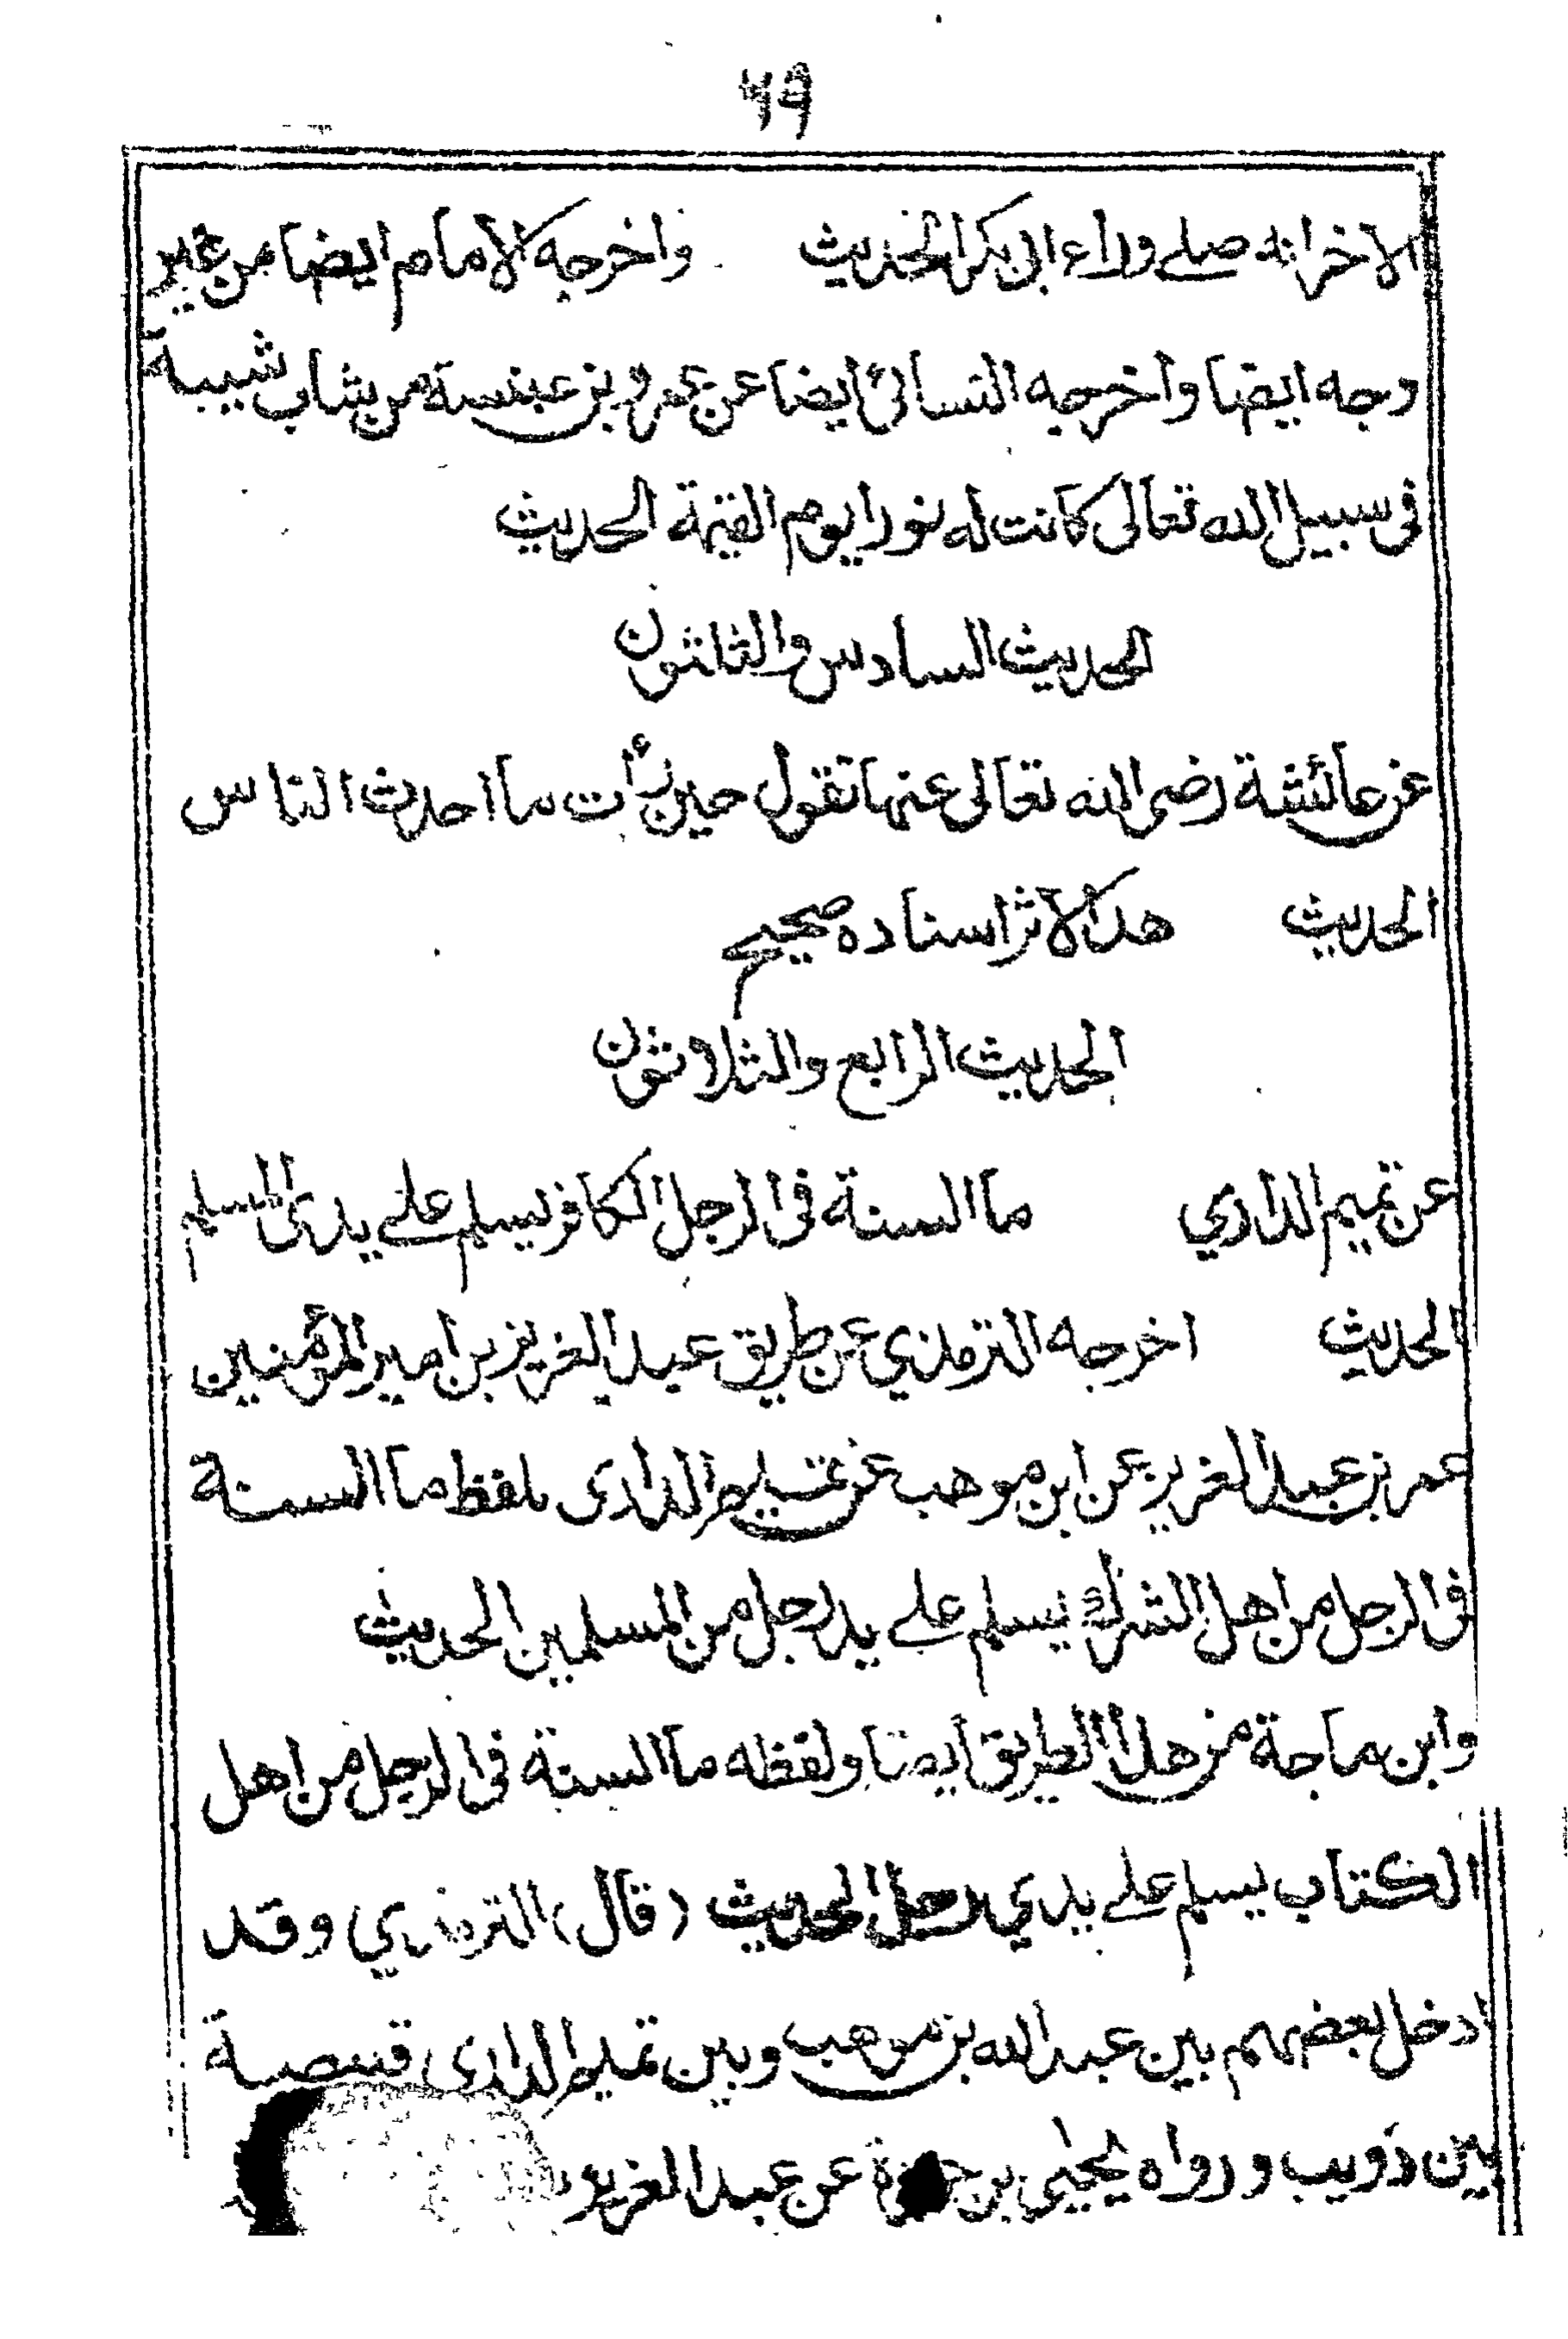 ٦٩
الاخرانه صلے وراء ابى بكر الحديث واخرجه الامام ايضا من غير
وجه ايضا واخرجه النسائى ايضا عن عمرو بن عبنسة من شاب شيبة
فى سبيل الله تعالى كانت له نورا يوم القيمة الحديث
الحديث السادس والثلثون
عن عائشة رضى الله تعالى عنها تقول حين رأت ما احدث الناس
الحديث هذا الاثر اسناده صحيح
الحديث الرابع والثلاثون
عن تميم الدارى ما السنة فى الرجل الكافر يسلم علے يدى المسلم
الحديث اخرجه الترمذي عن طريق عبد العزيز بن امير المؤمنين
عمر بن عبد العزيز عن ابن موهب عن تميم الدارى بلفظ ما السنة
فى الرجل من اهل الشرك يسلم علے يد رجل من المسلمين الحديث
وابن ماجة من هذا الطريق ايضا ولفظه ما السنة فى الرجل من اهل
الكتاب يسلم علے يدي رجل الحديث (قال) الترمذي وقد
ادخل بعضهم بين عبد الله بن موهب وبين تميم الدارى قبيصة
بين ذويب ورواه يحيى بن حمزة عن عبد العزيز